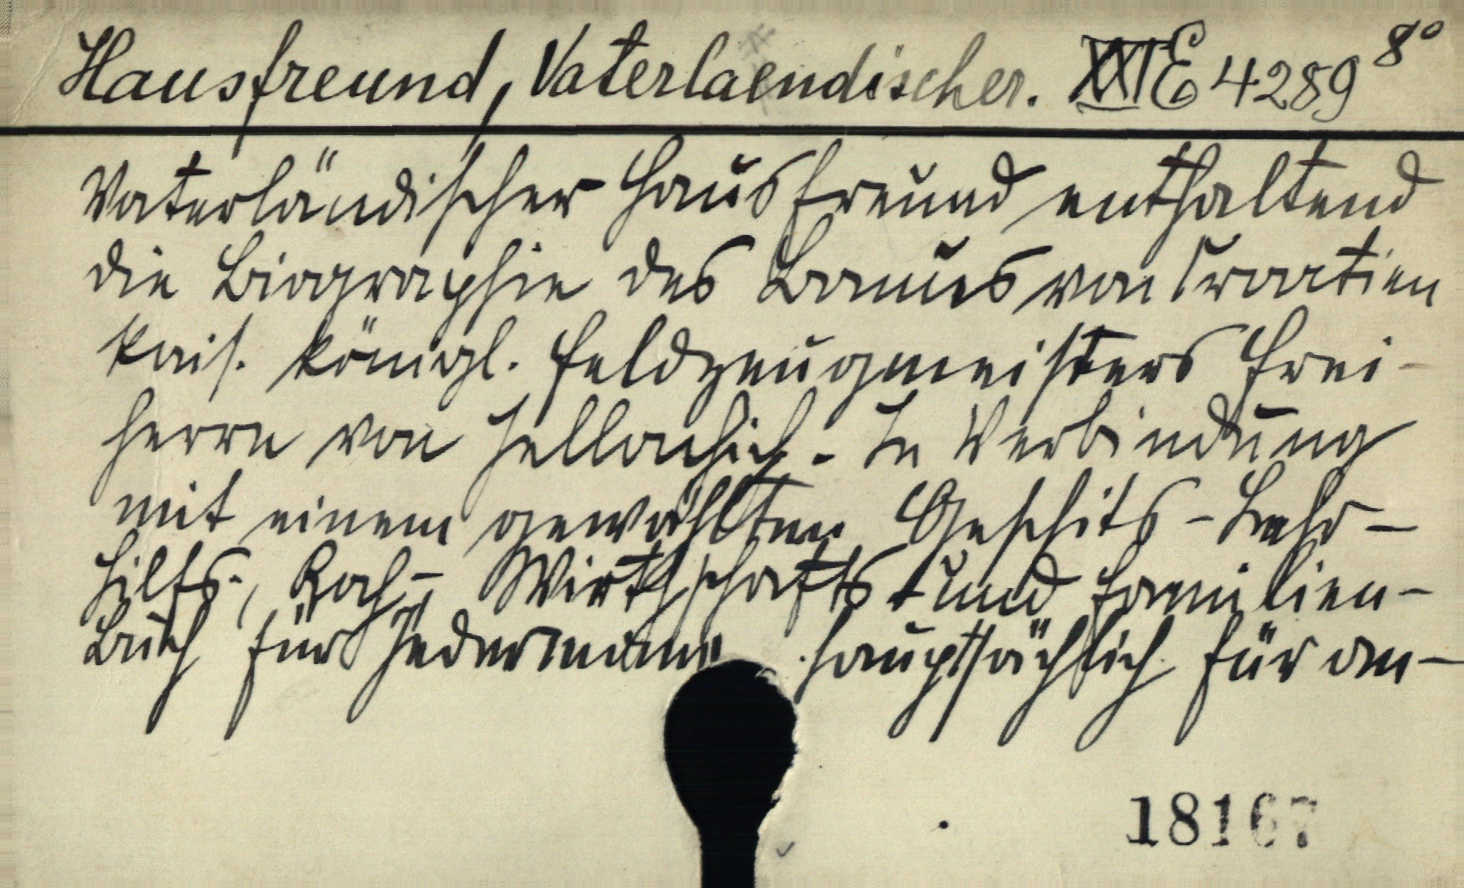 Hausfreund, Vaterlaendischer. XXI E 4289 8°
Vaterländischer Hausfreund enthaltend
die Biographie des Banus von Croatien
kais. königl. Feldzeugmeisters Frei-
herrn von Jellachich. In Verbindung
mit einem gewählten Geschäfts-Lehr-
Hilfs-, Koch- Wirthschafts- und Familien-
Buch für Jedermann hauptsächlich für an-
18167